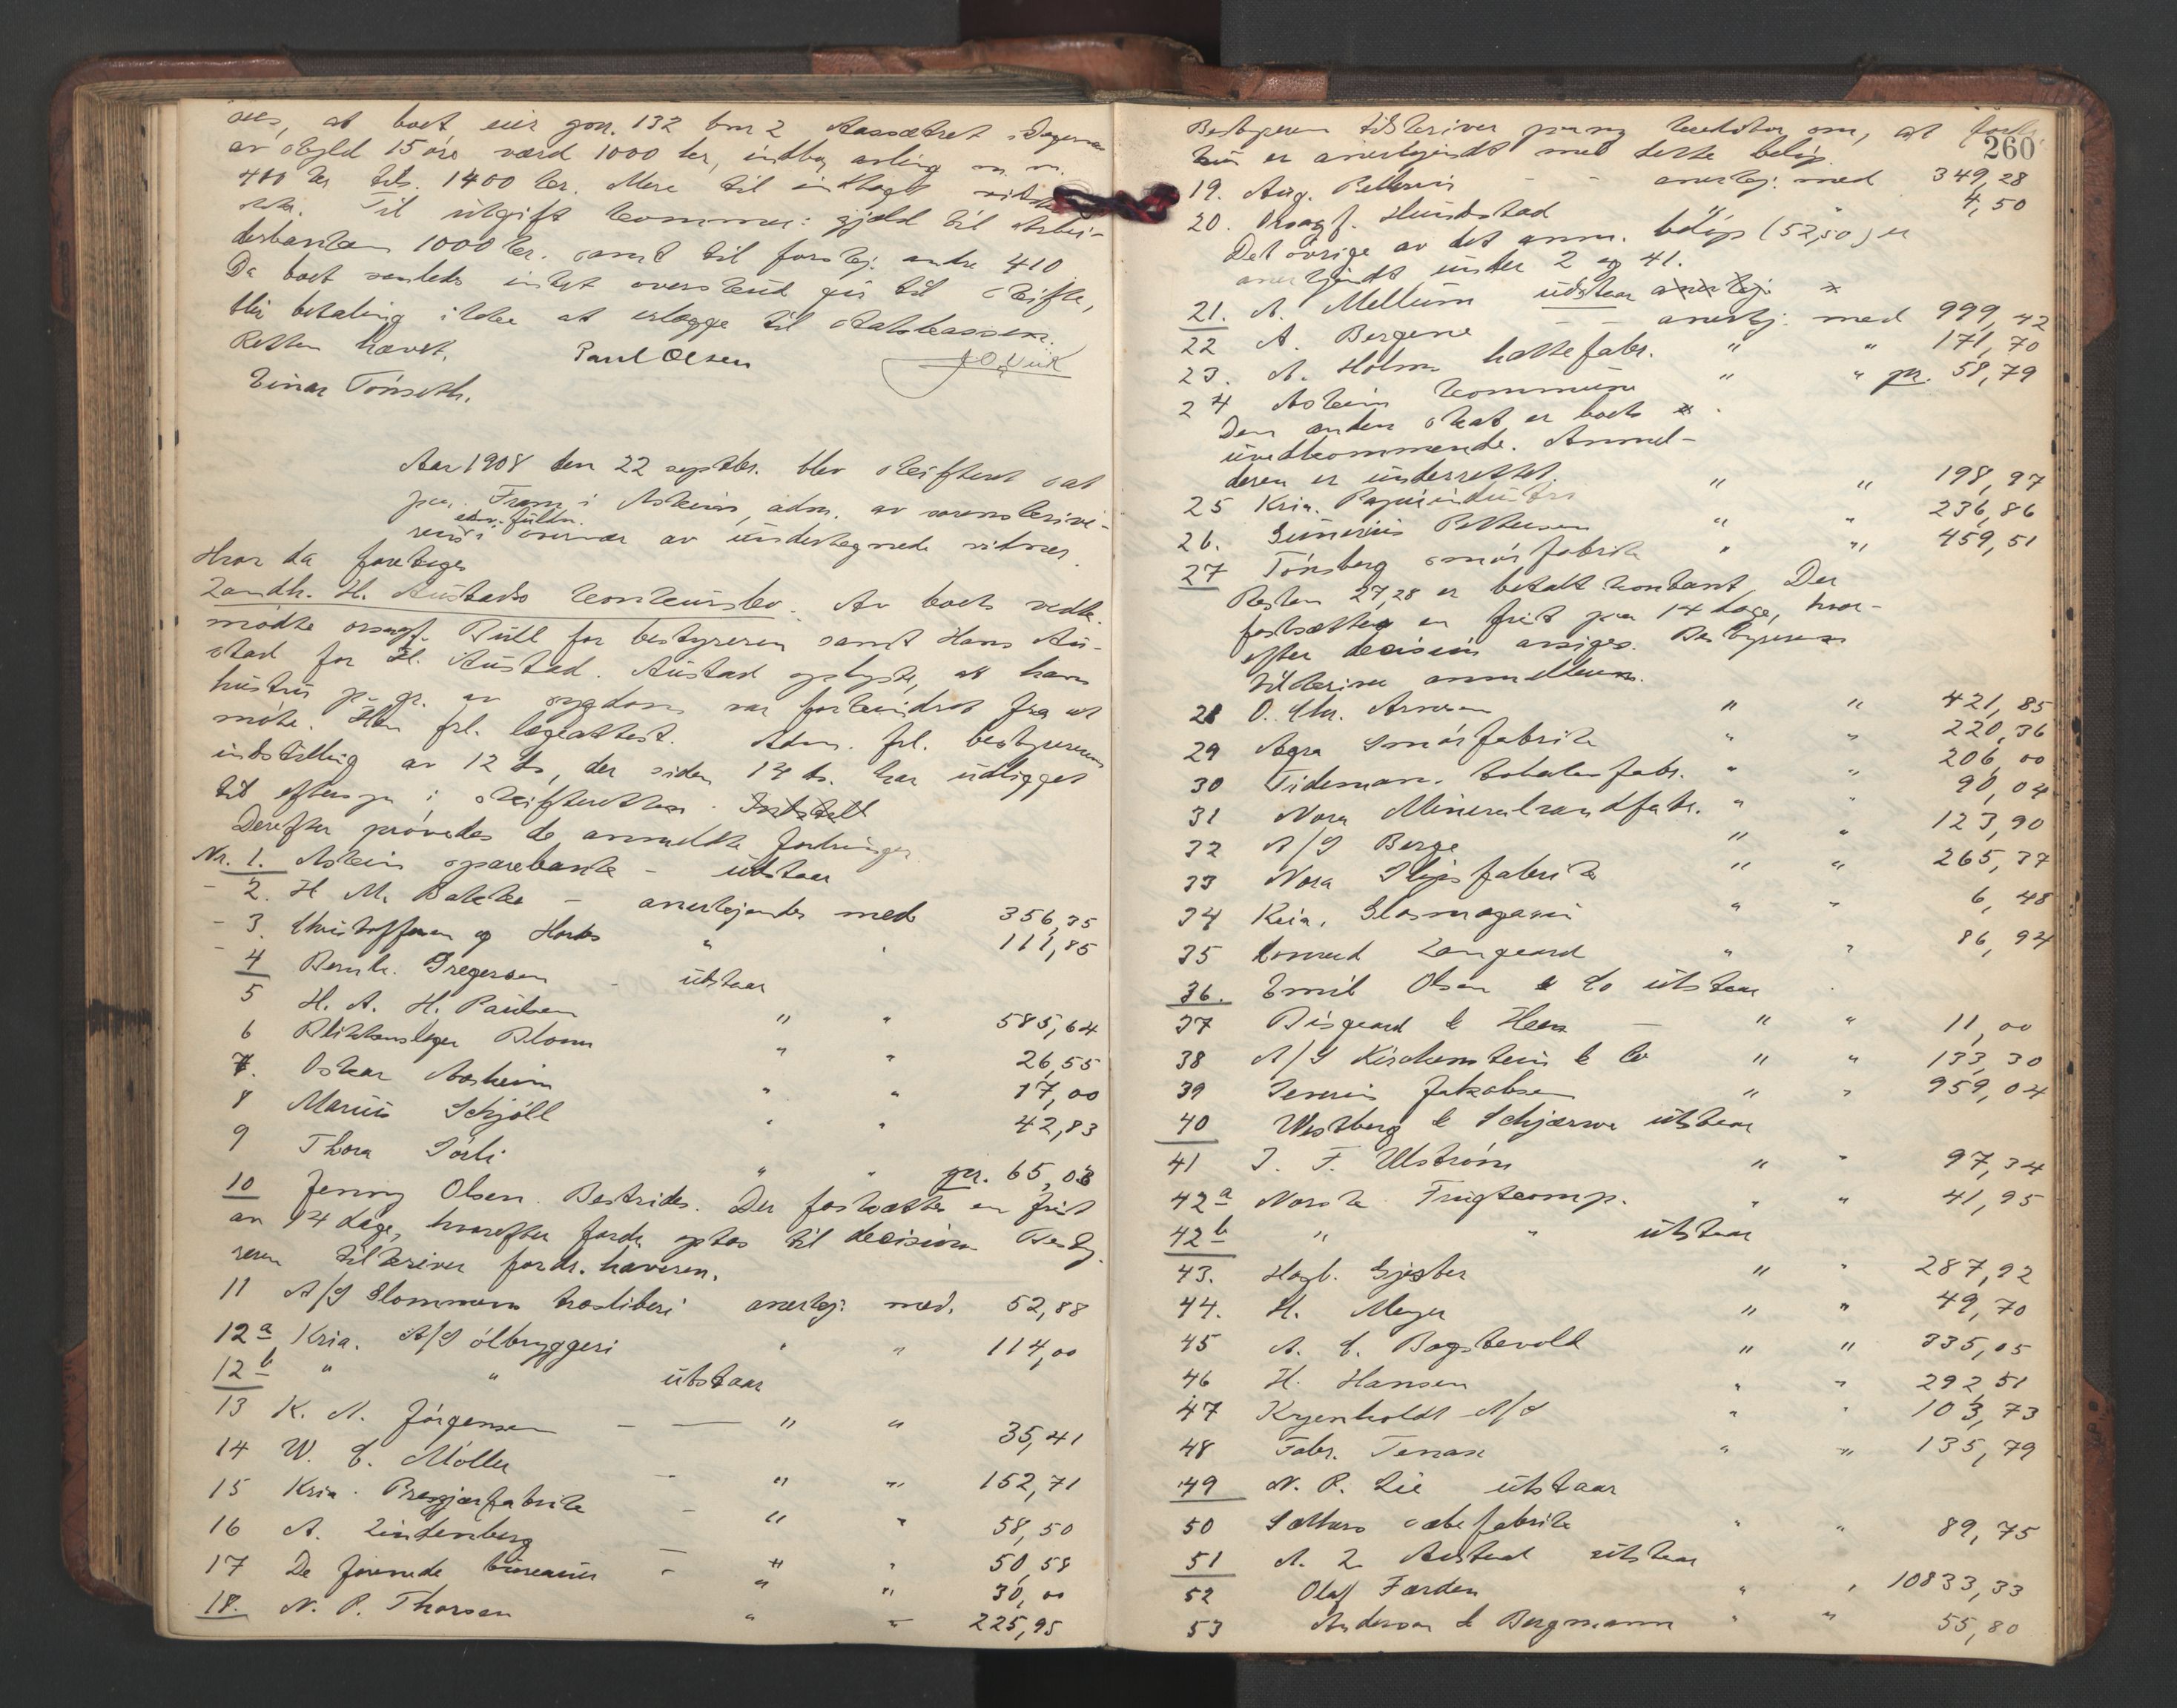 sees, at boet eier gnr. 132 bnr 2
av skyld 15 øre værd 1000 kr, indbo, avling m. m.
400 kr tils. 1400 kr. Mere til indtægt vites
ikke. Til utgift kommer: gjæld til Arbei-
derbanken 1000 kr. samt til forskj. andre 410
Da boet saaledes intet overskud gir til skifte,
blir betaling ikke at erlægge til statskassen.
Retten hævet.
Paul Olsen
J O Vik
Einar Tönseth.
Aar 1908 den 22 septbr. blev skifteret sat
paa Fram i Askim, adm. av sorenskrive-
ren ved fuldm. i overvær av undertegnede vitner.
Hvor da foretoges
Landh. H. Austads konkursbo. Av boets vedk.
mødte orsagf. Bull for bestyreren samt Hans Au-
stad for H. Austad. Austad oplyste, at hans
hustru p. gr. av sygdom var forhindret fra at
møte. Han frl. lægeattest. Adm. frl. bestyrerens
indstilling av 12 ds, der siden 14 ds. har utligget
til eftersyn i skifteretten. Indstill
Derefter prövedes de anmeldte fordringer
Nr. 1. Askim sparebank - utstaar
- 2. H M. Bakke - anerkjendes med 356,35
- 3. Christoffersen og " " 111,85
4 Bernh. Gregersen - utstaar
5 H. A. H. Paulsen " " 585,64
6 Blikkenslager Blom " " 26,55
7. Oskar Aasheim " " 17,00
8 Marius Schjöll " " 42,83
9 Thora Sörli " " pr. 65,08
10 Jenny Olsen. Bestrides. Der fastsættes en frist
av 14 dage, hvorefter fordr. optas til decision Besty-
reren tilskriver fordr. haveren.
11 A/S Glommens træsliberi anerkj. med. 52,88
12a Kria. A/S ölbryggeri " " 114,00
12b " " utstaar
13 K. A. Jörgensen - - " " 35,41
14 W. C. Möller - " " 152,71
15 Kria. Presgjærfabrik - " " 58,50
16 A. Lindenberg - " " 50,58
17 De forenede bureauer - " " 30,00
18. N. P. Thorsen " " 225,95
260
Bestyreren tilskriver kreditor om, at fordr.
kun er anerkjendt med dette beløp.
19. Aug. Pellerin - - anerkj. med 349,28
20. Orsagf. Hundstad " " 4,50
Det övrige av det anm. belöp (52,50) er
anerkjendt under 2 og 41.
21. A. Mellum utstaar anerkj.
22 A. Bergene - - anerkj. med 999,42
23. A. Holms hattefabr. " " 171,70
24 Askim kommune " " pr. 58,79
Den anden skat er boet
uvedkommende. Anmel-
deren er underrettet.
25 Kria. Papirindustri " " 198,97
26. Gunerius Pettersen " " 236,86
27 Tönsberg smörfabrik " " 459,51
Resten 27,28 er betalt kontant. Der
fastsættes en frist paa 14 dage, hvor-
efter decision avsiges. Bestyreren
tilskriver anmelderen.
28 O. Chr. Arnesen " " 421,85
29 Agra Smörfabrik " " 220,36
30 Tidemans tobaksfabr. " " 206,00
31 Nora Mineralvandfabr. " " 90,04
32 A/S Borge " " 123,90
33 Nora Slipsfabrik " " 265,37
34 Kria. Glasmagasin " " 6,48
35 Konrad Langaard " " 86,94
36. Emil Olsen & Co utstaar
37 Bisgaard & Heen - " " 11,00
38 A/S Kirchenstein & Co " " 133,30
39 Severin Jakobsen " " 959,04
40 Westberg & Schjærve utstaar
41 J. F. Ulström " " 97,34
42a Norsk Frugtcomp. " " 41,95
42b " " utstaar
43. Hagb. Gjester " " 287,92
44. H. Meyer " " 49,70
45 A. C. Bogstevold " " 335,05
46 H. Hansen " " 292,51
47 Kyenholdt A/S " " 103,73
48 Fabr. Tenax " " 135,79
49 N. P. Lie utstaar
50 Sætheres sæbefabrik " " 89,75
51 A. L. Austad utstaar
52 Olaf Færden " " 10833,33
53 Anderson & Bergmann " " 55,80